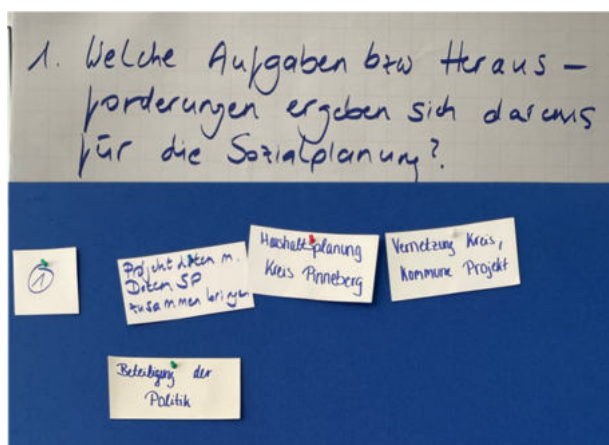 1. Welche Aufgaben bzw Heraus-
forderungen ergeben sich daraus
für die Sozialplanung?
1
Projektdaten m.
Daten SP
zusammen bringen
Haushaltsplanung
Kreis Pinneberg
Vernetzung Kreis,
Kommune Projekt
Beteiligung der
Politik